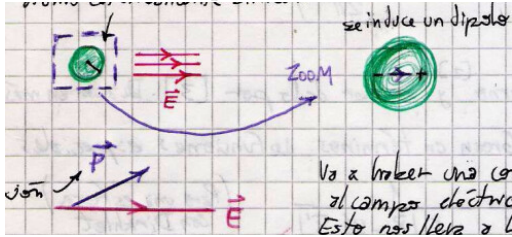 se induce un dipolo
ZOOM
- +
E
P
ión
E
Va a haber una co
al campo eléctric
Esto nos lleva a l